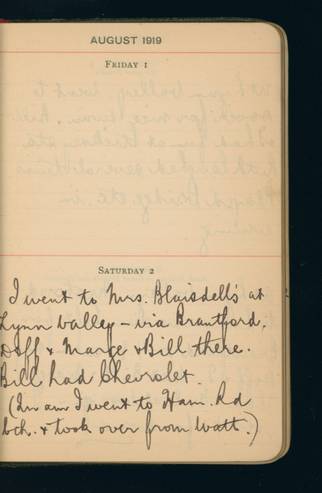 AUGUST 1919
FRIDAY 1
SATURDAY 2
I went to Mrs. Blaisdell's at
Lynn Valley - via Brantford.
Daff & Marge & Bill there.
Bill had Chevrolet.
(In am I went to Ham. Rd
& took over from Watt.)